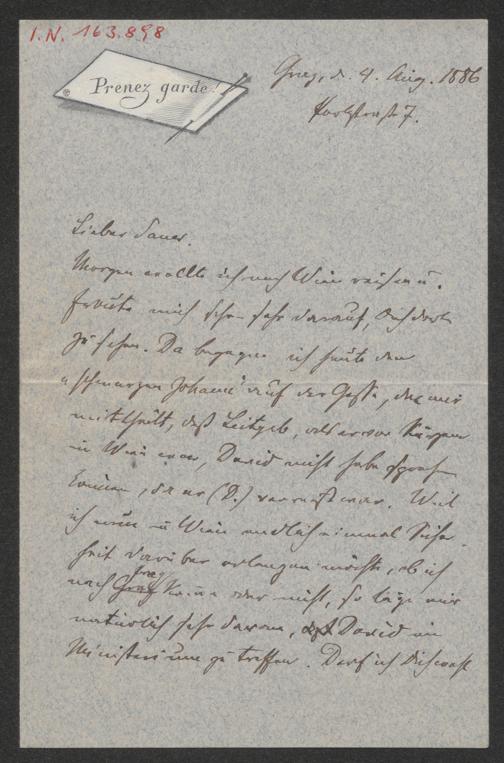 I.N. 163.898
Prenez garde!
Graz, d. 4. Aug. 1886
Lieber Sauer.
Morgen wollte ich nach Wien reisen u.
freute mich schon sehr darauf, Dich dort
zu sehen. Da begegne ich heute dem
„schwarzen Johann“ auf der Gasse, der mir
mittheilt, daß Leitgeb, als er vor Kurzem
in Wien war, David nicht habe sprechen
können, da er (D.) verreist war. Weil
ich nun in Wien endlich einmal Sicher-
heit darüber erlangen möchte, ob ich
nach Prag komme oder nicht, so läge mir
natürlich sehr daran, David im
Ministerium zu treffen. Darf ich Dich